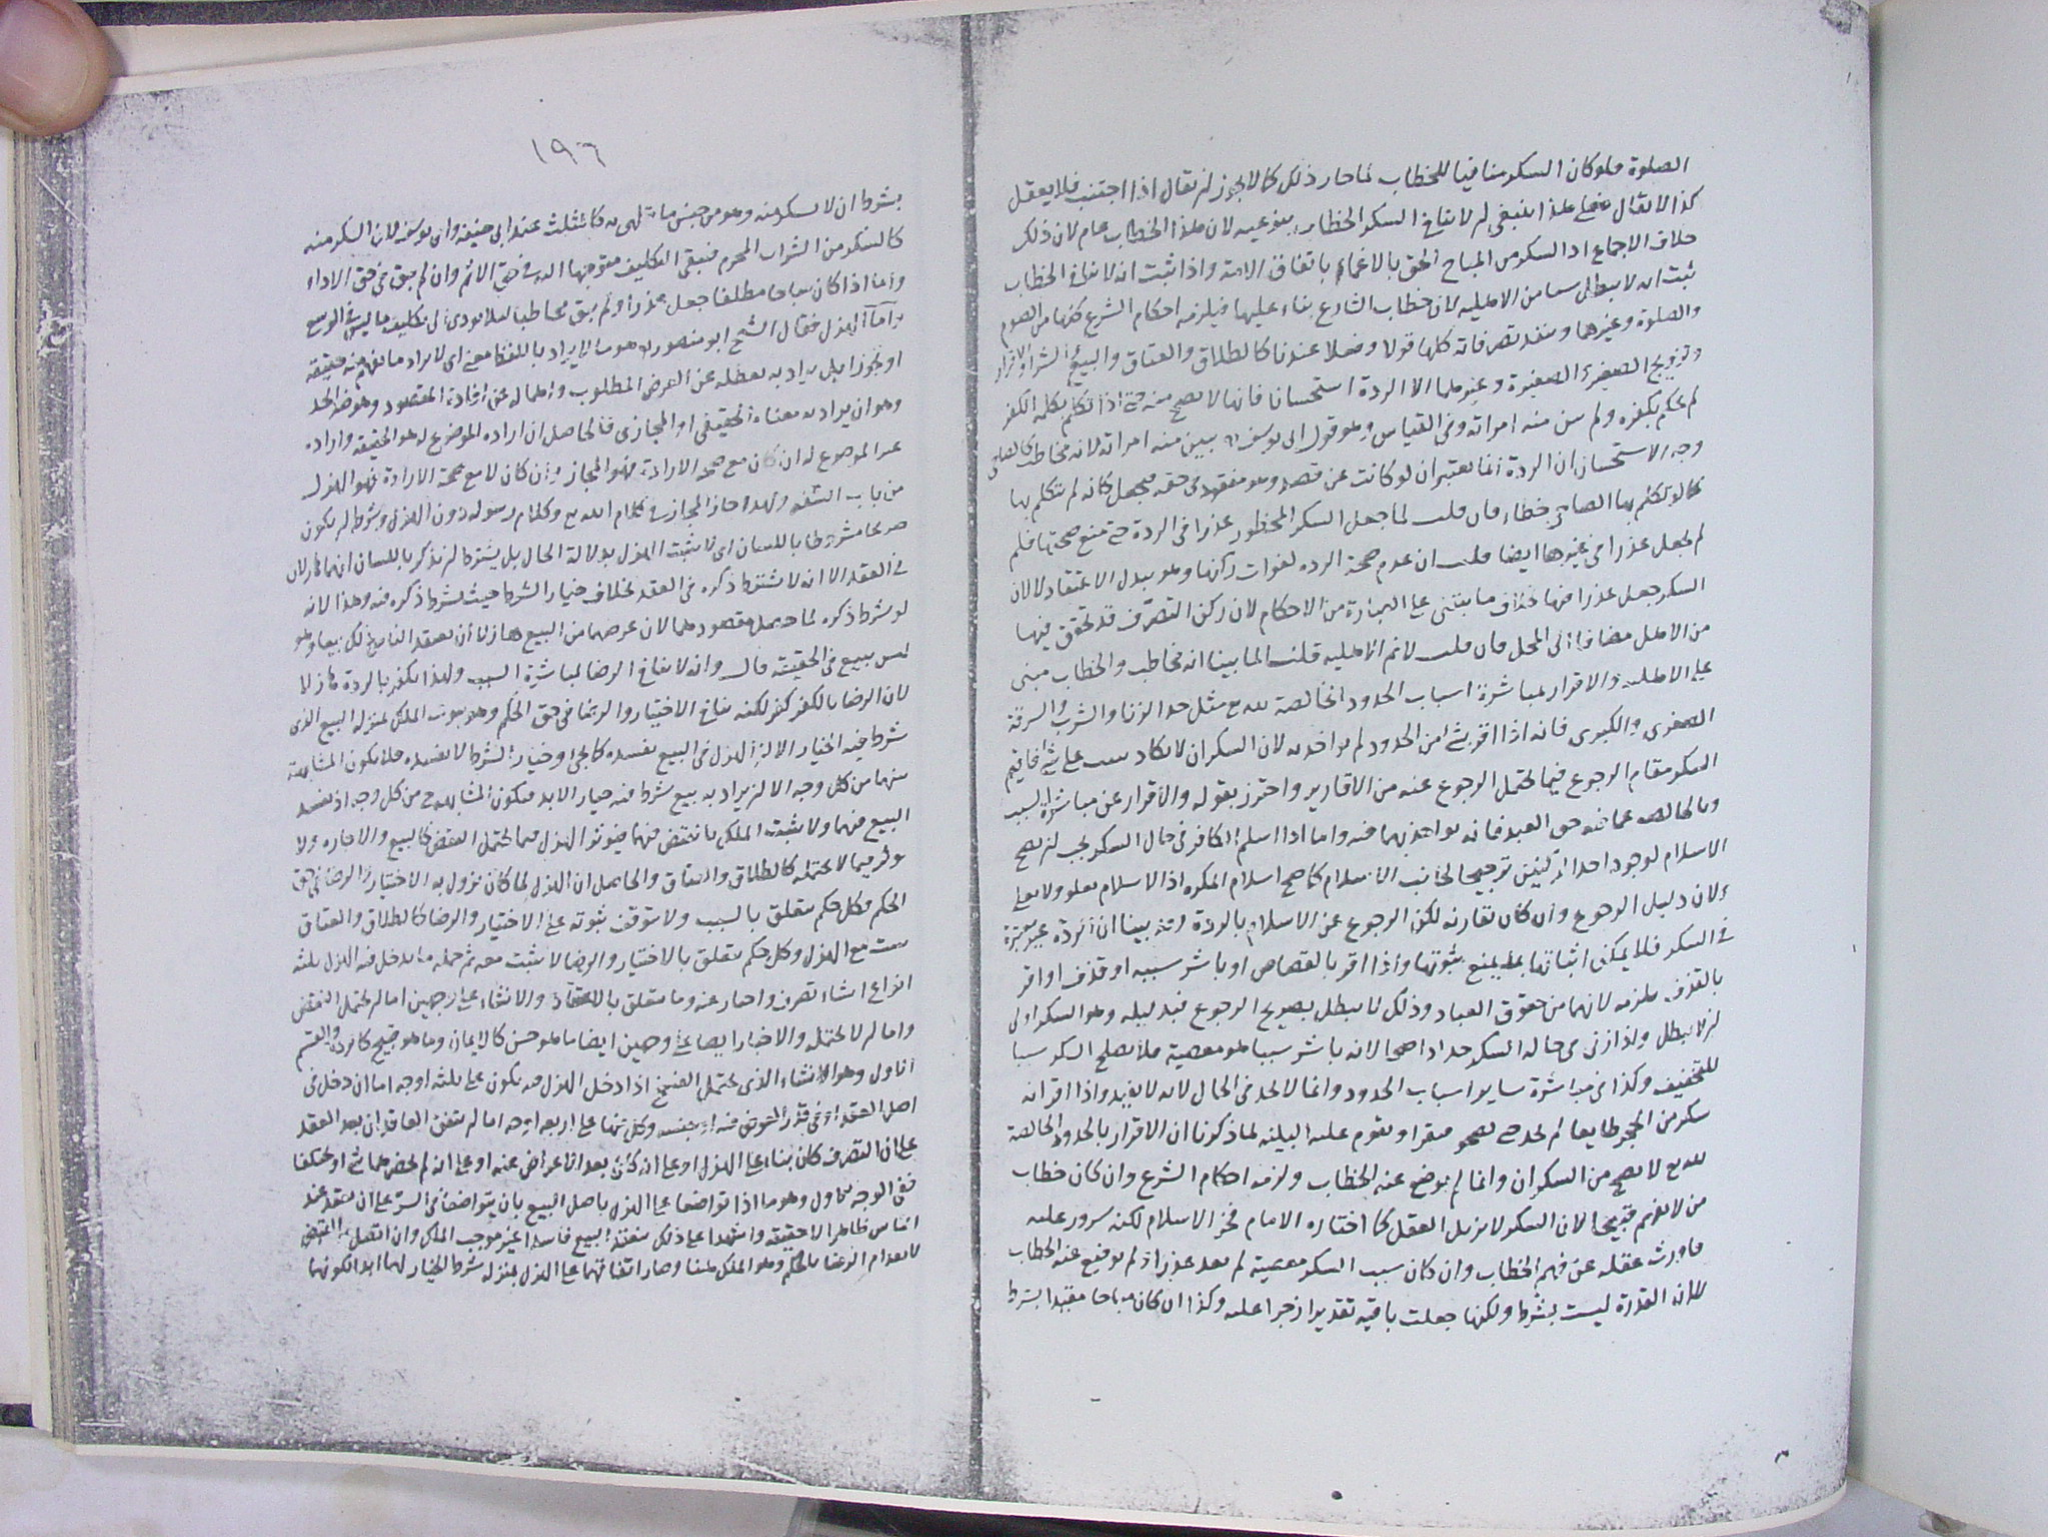 الصلوة فلو كان السكر منافيا للخطاب لما جاز ذلك كما لا يجوز ان يقال اذا اجننت فلا يعقل
كذا لا يقال فعلى هذا ينبغي ان لا ينافي السكر الخطاب بنوعيه لان هذا الخطاب عام لان ذلك
خلاف الاجماع اذ السكر من المباح الحق بالاغماء باتفاق الامة واذا ثبت انه لا ينافي الخطاب
ثبت انه لا يبطل شيا من الاهلية لان خطاب الشارع بناء عليها فيلزمه احكام الشرع كلها من الصوم
والصلوة وغيرهما وينفذ تصرفاته كلها قولا وفعلا عندنا كالطلاق والعتاق والبيع والشراء والاقرار
وتزويج الصغير والصغيرة وغيرهما الا الردة استحسانا فانها لا يصح منه حتى اذا تكلم بكلمة الكفر
لم يحكم بكفره ولم تبن منه امراته وفي القياس وهو قول ابي يوسف تبين منه امراته لانه مخاطب كالصاحي
وجه الاستحسان ان الردة انما يعتبر ان لو كانت عن قصد وهو مفقود في حقه فيجعل كانه لم يتكلم بها
كما لو تكلم بها الصاحي خطاء فان قلت لما جعل السكر المحظور عذرا في الردة حتى منع صحتها فلم
لم يجعل عذرا في غيرها ايضا قلت ان عدم صحة الردة لفوات ركنها وهو تبدل الاعتقاد لا لان
السكر جعل عذرا فيها بخلاف ما يبتني على العبارة من الاحكام لان ركن التصرف قد تحقق فيها
من الاهل مضافا الى المحل فان قلت لا نم الاهلية قلنا لما بينا انه مخاطب والخطاب مبني
على الاهلية والاقرار بمباشرة اسباب الحدود الخالصة لله تع مثل حد الزنا والشرب والسرقة
الصغرى والكبرى فانه اذا اقر بشئ من الحدود لم يؤاخذ به لان السكران لا يكاد يثبت على شئ فاقيم
السكر مقام الرجوع فيما يحتمل الرجوع عنه من الاقارير واحترز بقوله والاقرار عن مباشرة السبب
وبالخالصة عما فيه حق العبد فانه يؤاخذ بهما فيه واما اذا اسلم الكافر في حال السكر يجب ان يصح
الاسلام لوجود احد الركنين ترجيحا لجانب الاسلام كما صح اسلام المكره اذ الاسلام يعلو ولا يعلى
ولان دليل الرجوع وان كان تقارنه لكن الرجوع عن الاسلام بالردة وقد بينا ان الردة غير معتبرة
في السكر فلا يمكن اثباتها بما يمنع ثبوتها واذا اقر بالقصاص او باشر سببه او قذف او اقر
بالقذف يلزمه لانهما من حقوق العباد وذلك لا يبطل بصريح الرجوع فبدليله وهو السكر اولى
ان لا يبطل واذا زنى في حالة السكر حد اذا صحا لانه باشر سببا هو معصية فلا يصلح السكر سببا
للتخفيف وكذا في مباشرة ساير اسباب الحدود وانما لا يحد في الحال لانه لا يفيد واذا اقر انه
سكر من الخمر طايعا لم يحد حتى يصحو فيقر او يقوم عليه البينة لما ذكرنا ان الاقرار بالحدود الخالصة
لله تع لا يصح من السكران وانما لم يوضع عنه الخطاب ولزمه احكام الشرع وان كان خطاب
من لا يفهم قبيحا لان السكر لا يزيل العقل كما اختاره الامام فخر الاسلام لكنه سرور غلب
فاورث عقله عن فهم الخطاب وان كان سبب السكر معصية لم يعد عذرا فلم يوضع عنه الخطاب
لان القدرة ليست بشرط ولكنها جعلت باقية تقديرا زجرا عليه وكذا ان كان مباحا مقيدا بشرط
١٩٦
بشرط ان لا يسكر منه وهو من جنس ما يتلهى به كالمثلث عند ابي حنيفة وابي يوسف لان السكر منه
كالسكر من الشراب المحرم فيبقى التكليف متوجها اليه في حق الاثم وان لم يبق في حق الاداء
واما اذا كان مباحا مطلقا جعل عذرا ولم يبق مخاطبا لئلا يودي الى تكليف ما ليس في الوسع
واما الهزل فقال الشيخ ابو منصور هو ما لا يراد باللفظ معنى اي لا يراد ما يفهم منه حقيقة
او تجوزا بل يراد به تعطله عن الغرض المطلوب واهماله عن افادة المقصود وهو ضد الجد
وهو ان يراد به معناه الحقيقي او المجازي فالحاصل ان اراده الموضوع له هو الحقيقة واراده
غير الموضوع له ان كان مع صحة الارادة فهو المجاز وان كان لا مع صحة الارادة فهو الهزل
من باب السفه ولهذا جاز المجاز في كلام الله تع وكلام رسوله دون الهزل وشرطه ان يكون
صريحا مشروطا باللسان اي لا يثبت الهزل بدلالة الحال بل يشترط ان يذكر باللسان انهما هازلان
في العقد الا انه لا يشترط ذكره في العقد بخلاف خيار الشرط حيث يشترط ذكره فيه وهذا لانه
لو شرط ذكره لما حصل مقصودهما لان غرضهما من البيع هازلا ان يعتقد الناس ذلك بيعا وهو
ليس ببيع في الحقيقة قال وانه لا ينافي الرضا لمباشرة السبب ولهذا يكفر بالردة هازلا
لان الرضا بالكفر كفر لكنه ينافي الاختيار والرضا في حق الحكم وهو ثبوت الملك بمنزلة البيع الذي
شرط فيه الخيار الا ان الهزل في البيع يفسده كما يجئ وخيار الشرط لا يفسده فلا يكون المشابهة
بينهما من كل وجه الا ان يراد به بيع شرط فيه خيار الابد فيكون المشابهة ح من كل وجه اذ يفسد
البيع فيهما ولا يثبت الملك بالقبض فيهما فيوثر الهزل فيما يحتمل النقض كالبيع والاجارة ولا
يوثر فيما لا يحتمله كالطلاق والعتاق والحاصل ان الهزل لما كان يزول به الاختيار والرضا في حق
الحكم فكل حكم يتعلق بالسبب ولا يتوقف ثبوته على الاختيار والرضا كالطلاق والعتاق
يثبت مع الهزل وكل حكم يتعلق بالاختيار والرضا لا يثبت معه ثم جملة ما يدخل فيه الهزل ثلثة
انواع انشاء تصرف واخبار عنه وما يتعلق بالاعتقاد والانشاء على وجهين اما ان يحتمل النقض
واما ان لا يحتمله والاخبار ايضا على وجهين ايضا ما هو حسن كالايمان وما هو قبيح كالردة والقسم
الاول وهو الانشاء الذي يحتمل الفسخ اذا دخل الهزل فيه يكون على ثلثة اوجه اما ان دخل في
اصل العقد او في قدر العوض فيه او جنسه وكل منها على اربعة اوجه اما ان يتفق العاقدان بعد العقد
على ان التصرف كان بناء على الهزل او على انه كان بعد الاعراض عنه او على انه لم يحضرهما شئ او يختلفا
ففي الوجه الاول وهو ما اذا تواضعا على الهزل باصل البيع بان يتواضعا في السر على ان ينعقد عند
الناس ظاهرا لا حقيقة واشهدا على ذلك ينعقد البيع فاسدا غير موجب الملك وان اتصل به القبض
لانعدام الرضا بالحكم وهو الملك هنا وصار اتفاقهما على الهزل بمنزلة شرط الخيار لهما ابدا لكونهما